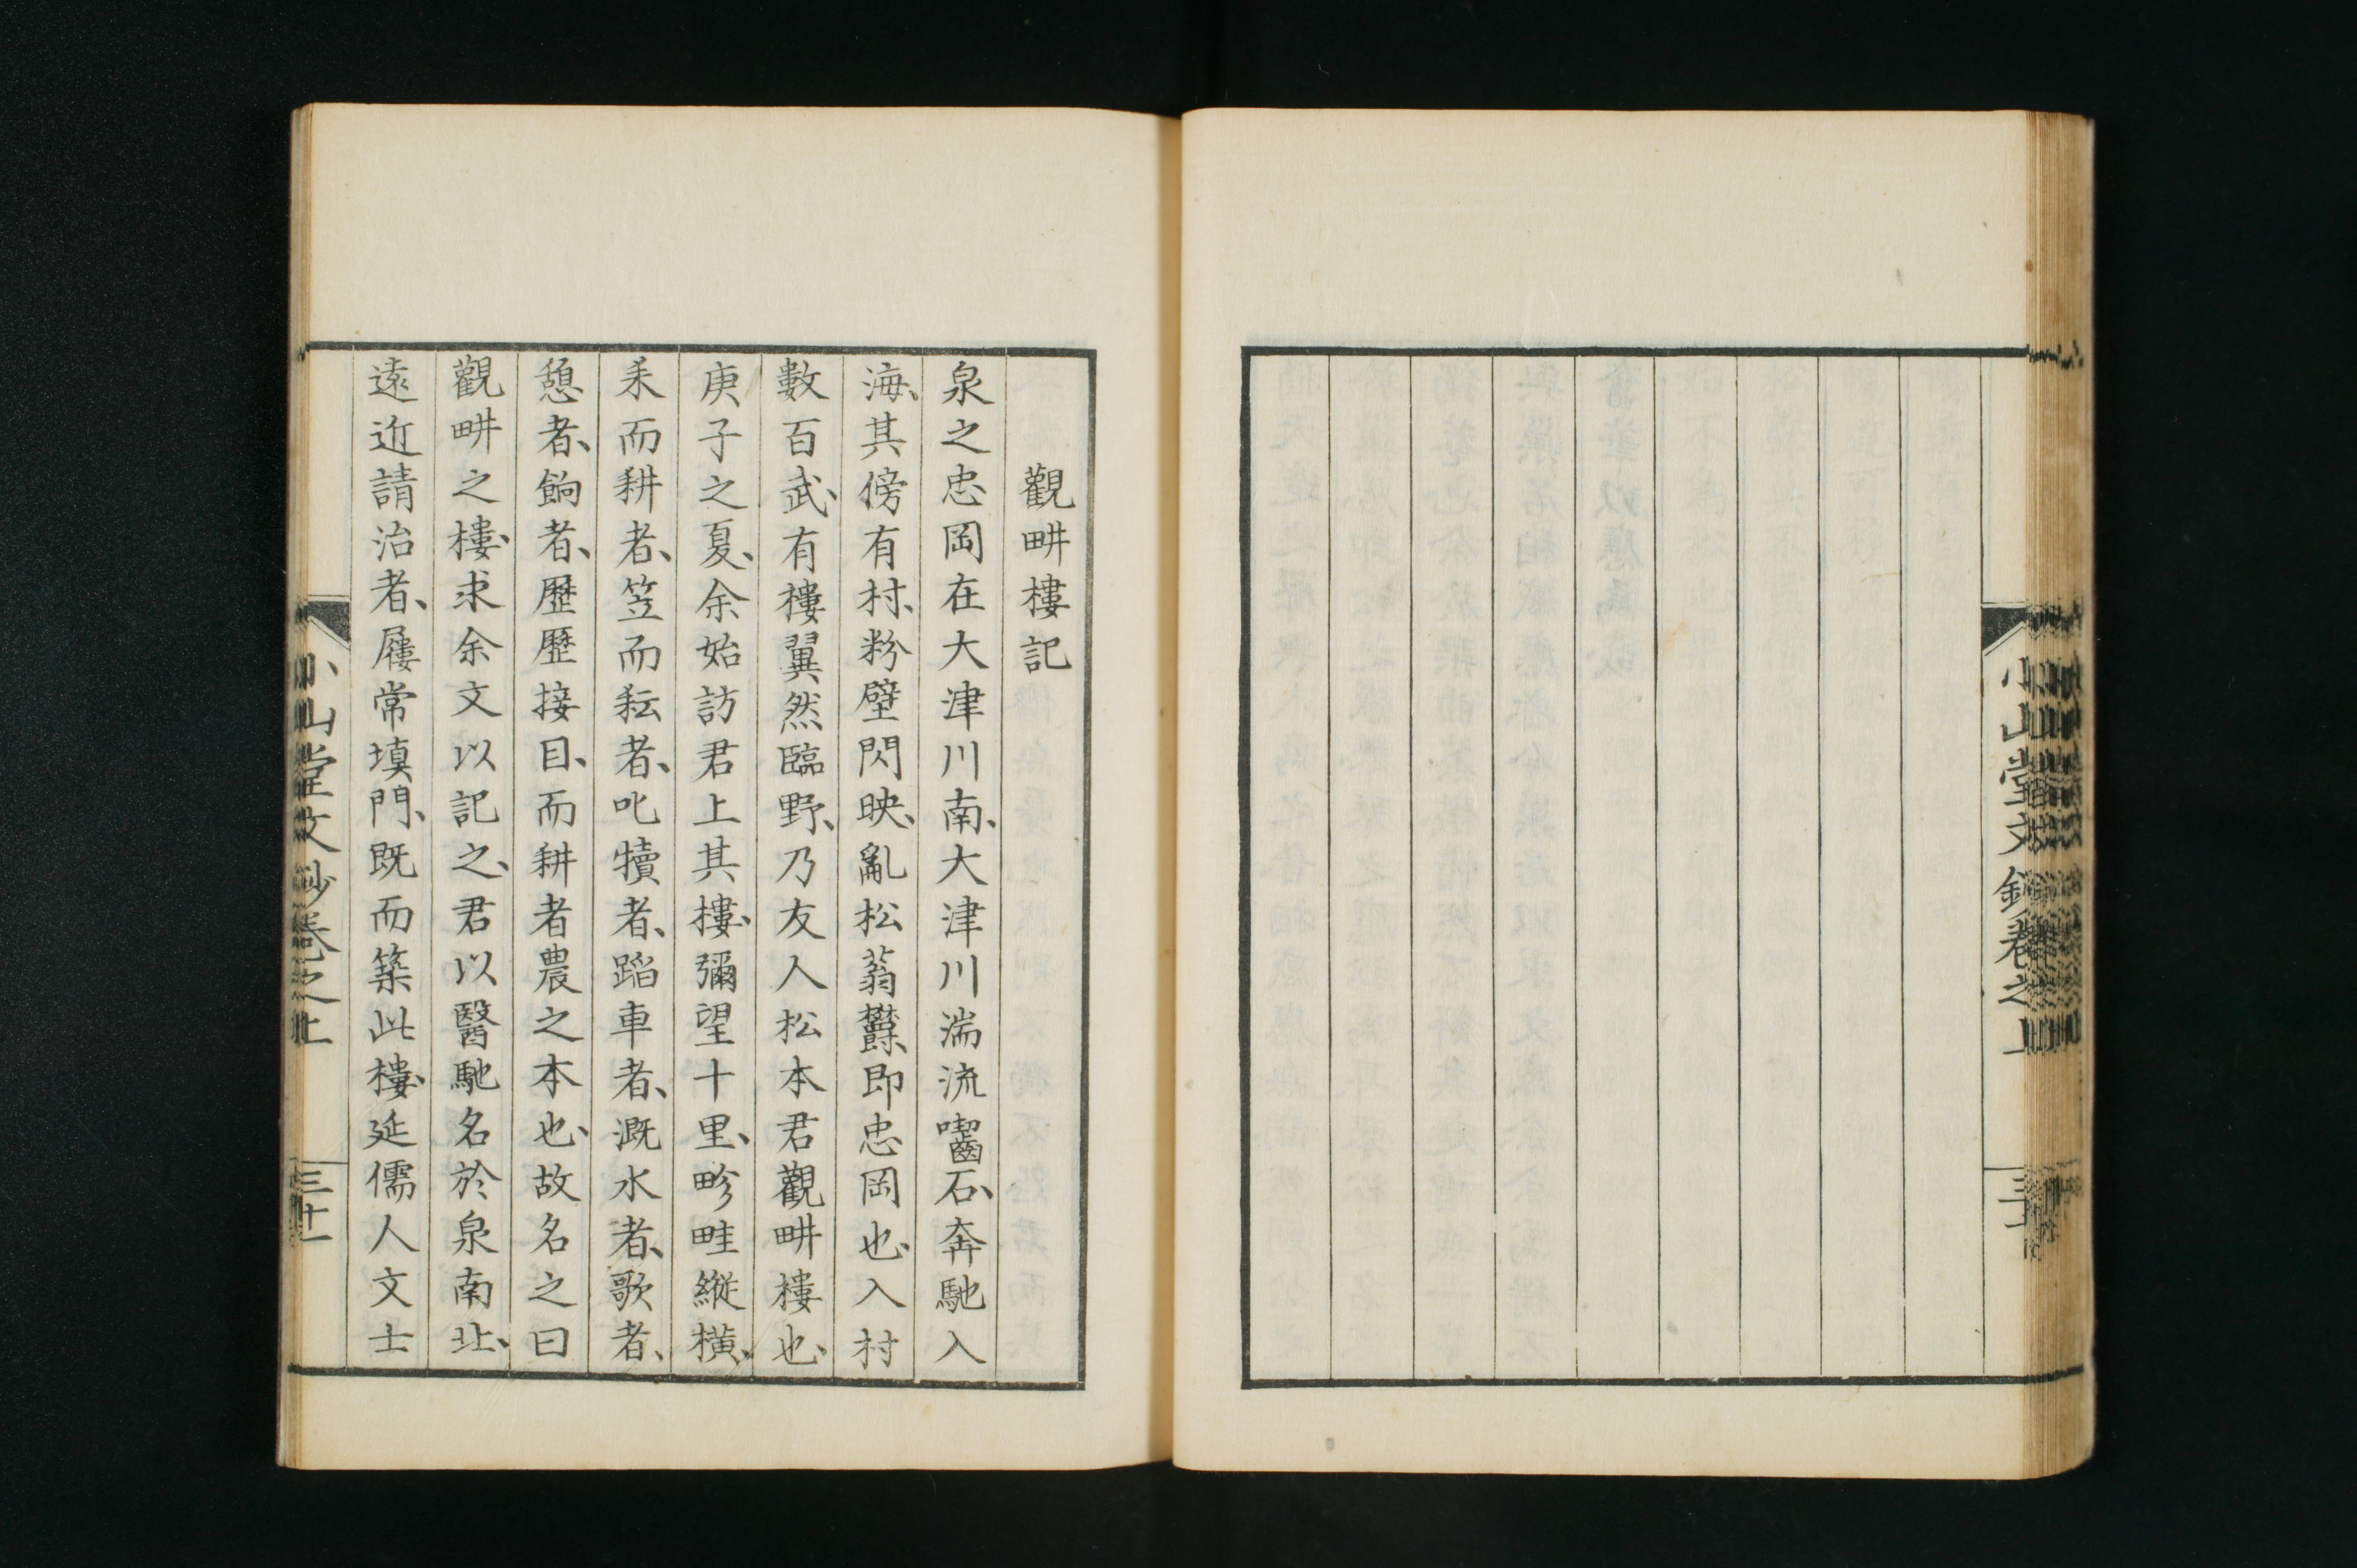 小山堂文鈔卷之上
三十
觀畊樓記
泉之忠岡在大津川南、大津川湍流囓石、奔馳入
海、其傍有村、粉壁閃映、亂松蓊欝、即忠岡也、入村
數百武、有樓翼然臨野、乃友人松本君觀畊樓也、
庚子之夏、余始訪君上其樓、彌望十里、畛畦縱橫、
耒而耕者、笠而耘者、叱犢者、蹈車者、溉水者、歌者、
憩者、餉者、歷歷接目、而耕者農之本也、故名之曰
觀畊之樓、求余文以記之、君以醫馳名於泉南北、
遠近請治者、屨常塡門、既而築此樓、延儒人文士
小山堂文鈔卷之上
三十一